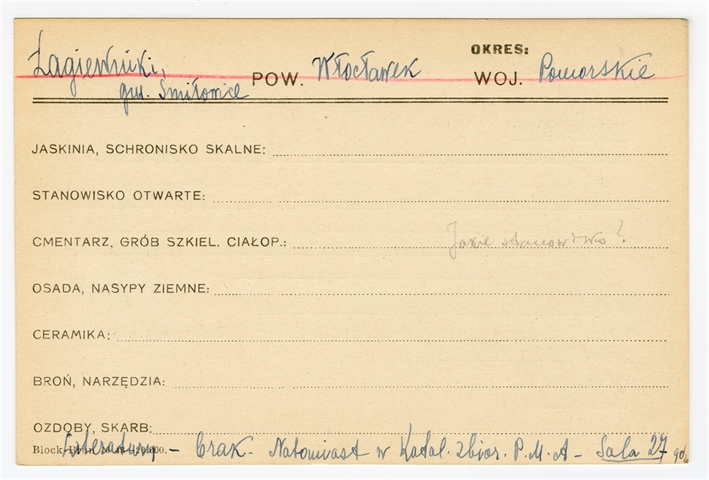 OKRES:
Łagiewniki, POW. Włocławek WOJ. Pomorskie
gm. Śmiłowice
JASKINIA, SCHRONISKO SKALNE:
STANOWISKO OTWARTE:
CMENTARZ, GRÓB SZKIEL. CIAŁOP.: Jakie stanowisko?
OSADA, NASYPY ZIEMNE:
CERAMIKA:
BROŃ, NARZĘDZIA:
OZDOBY, SKARB:
Literatury – brak. Natomiast w Katal. zbior. P.M.A – Sala 27
Block-Brun